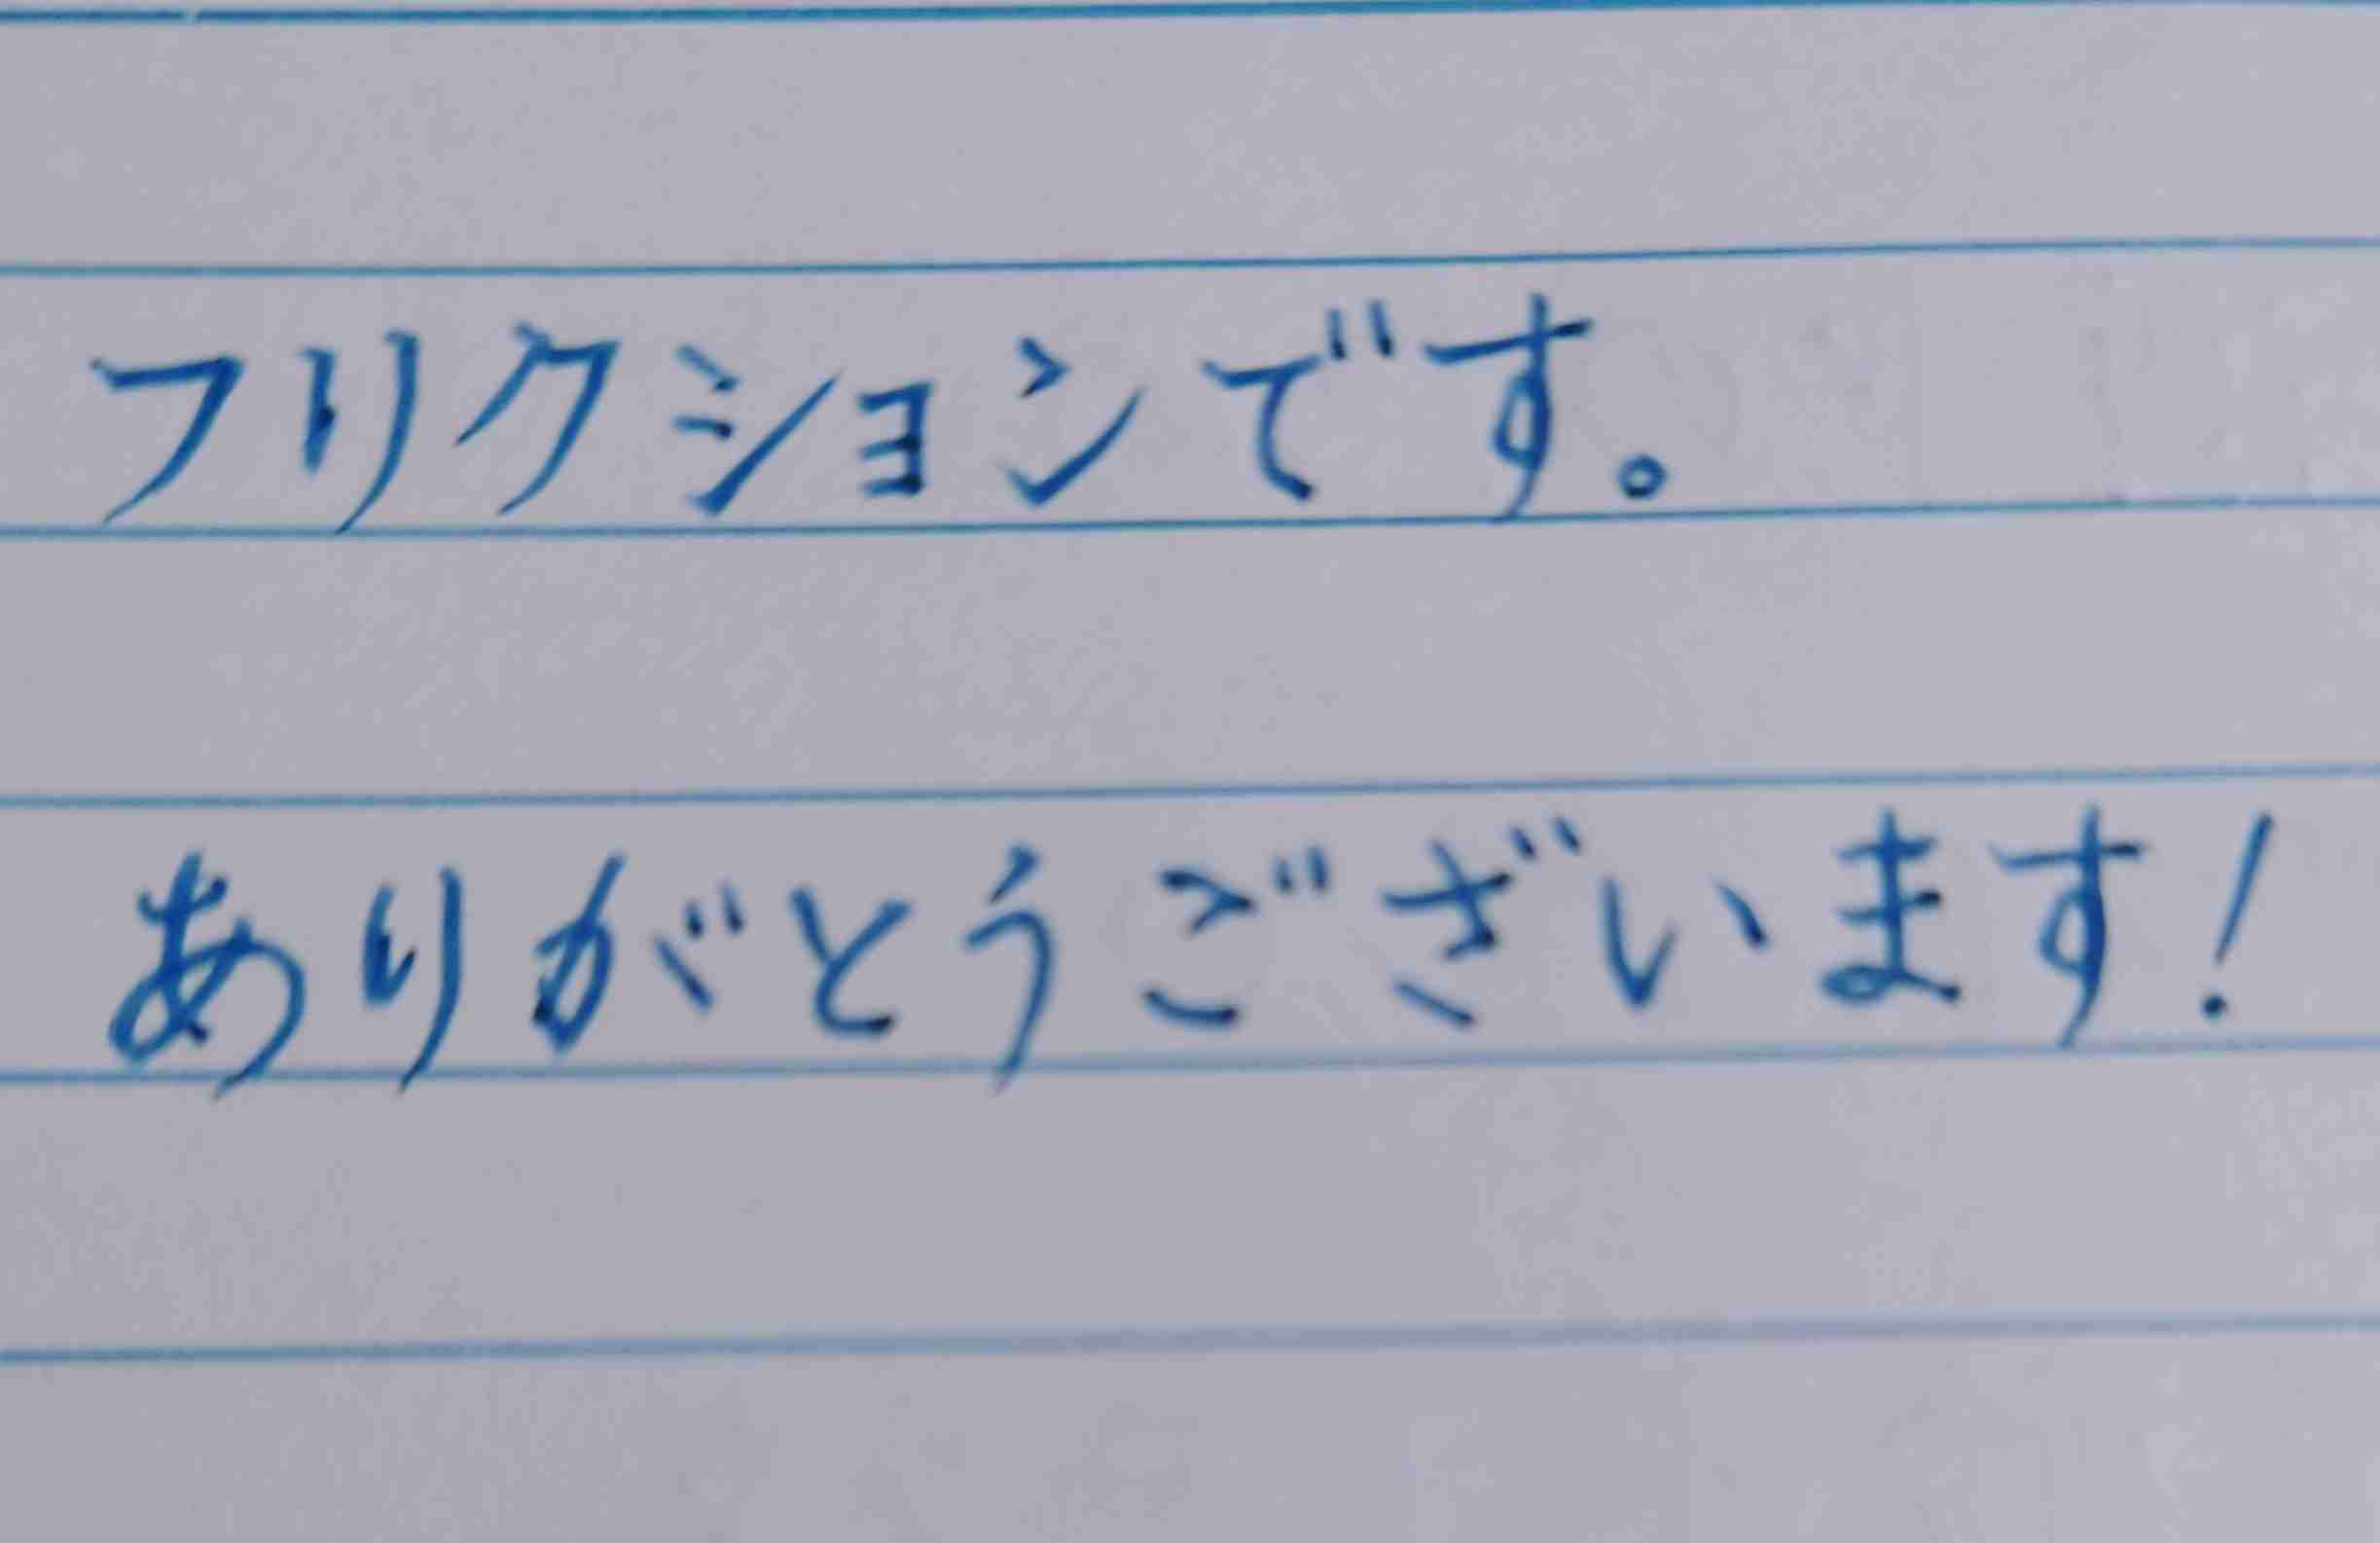 フリクションです。
ありがとうございます!